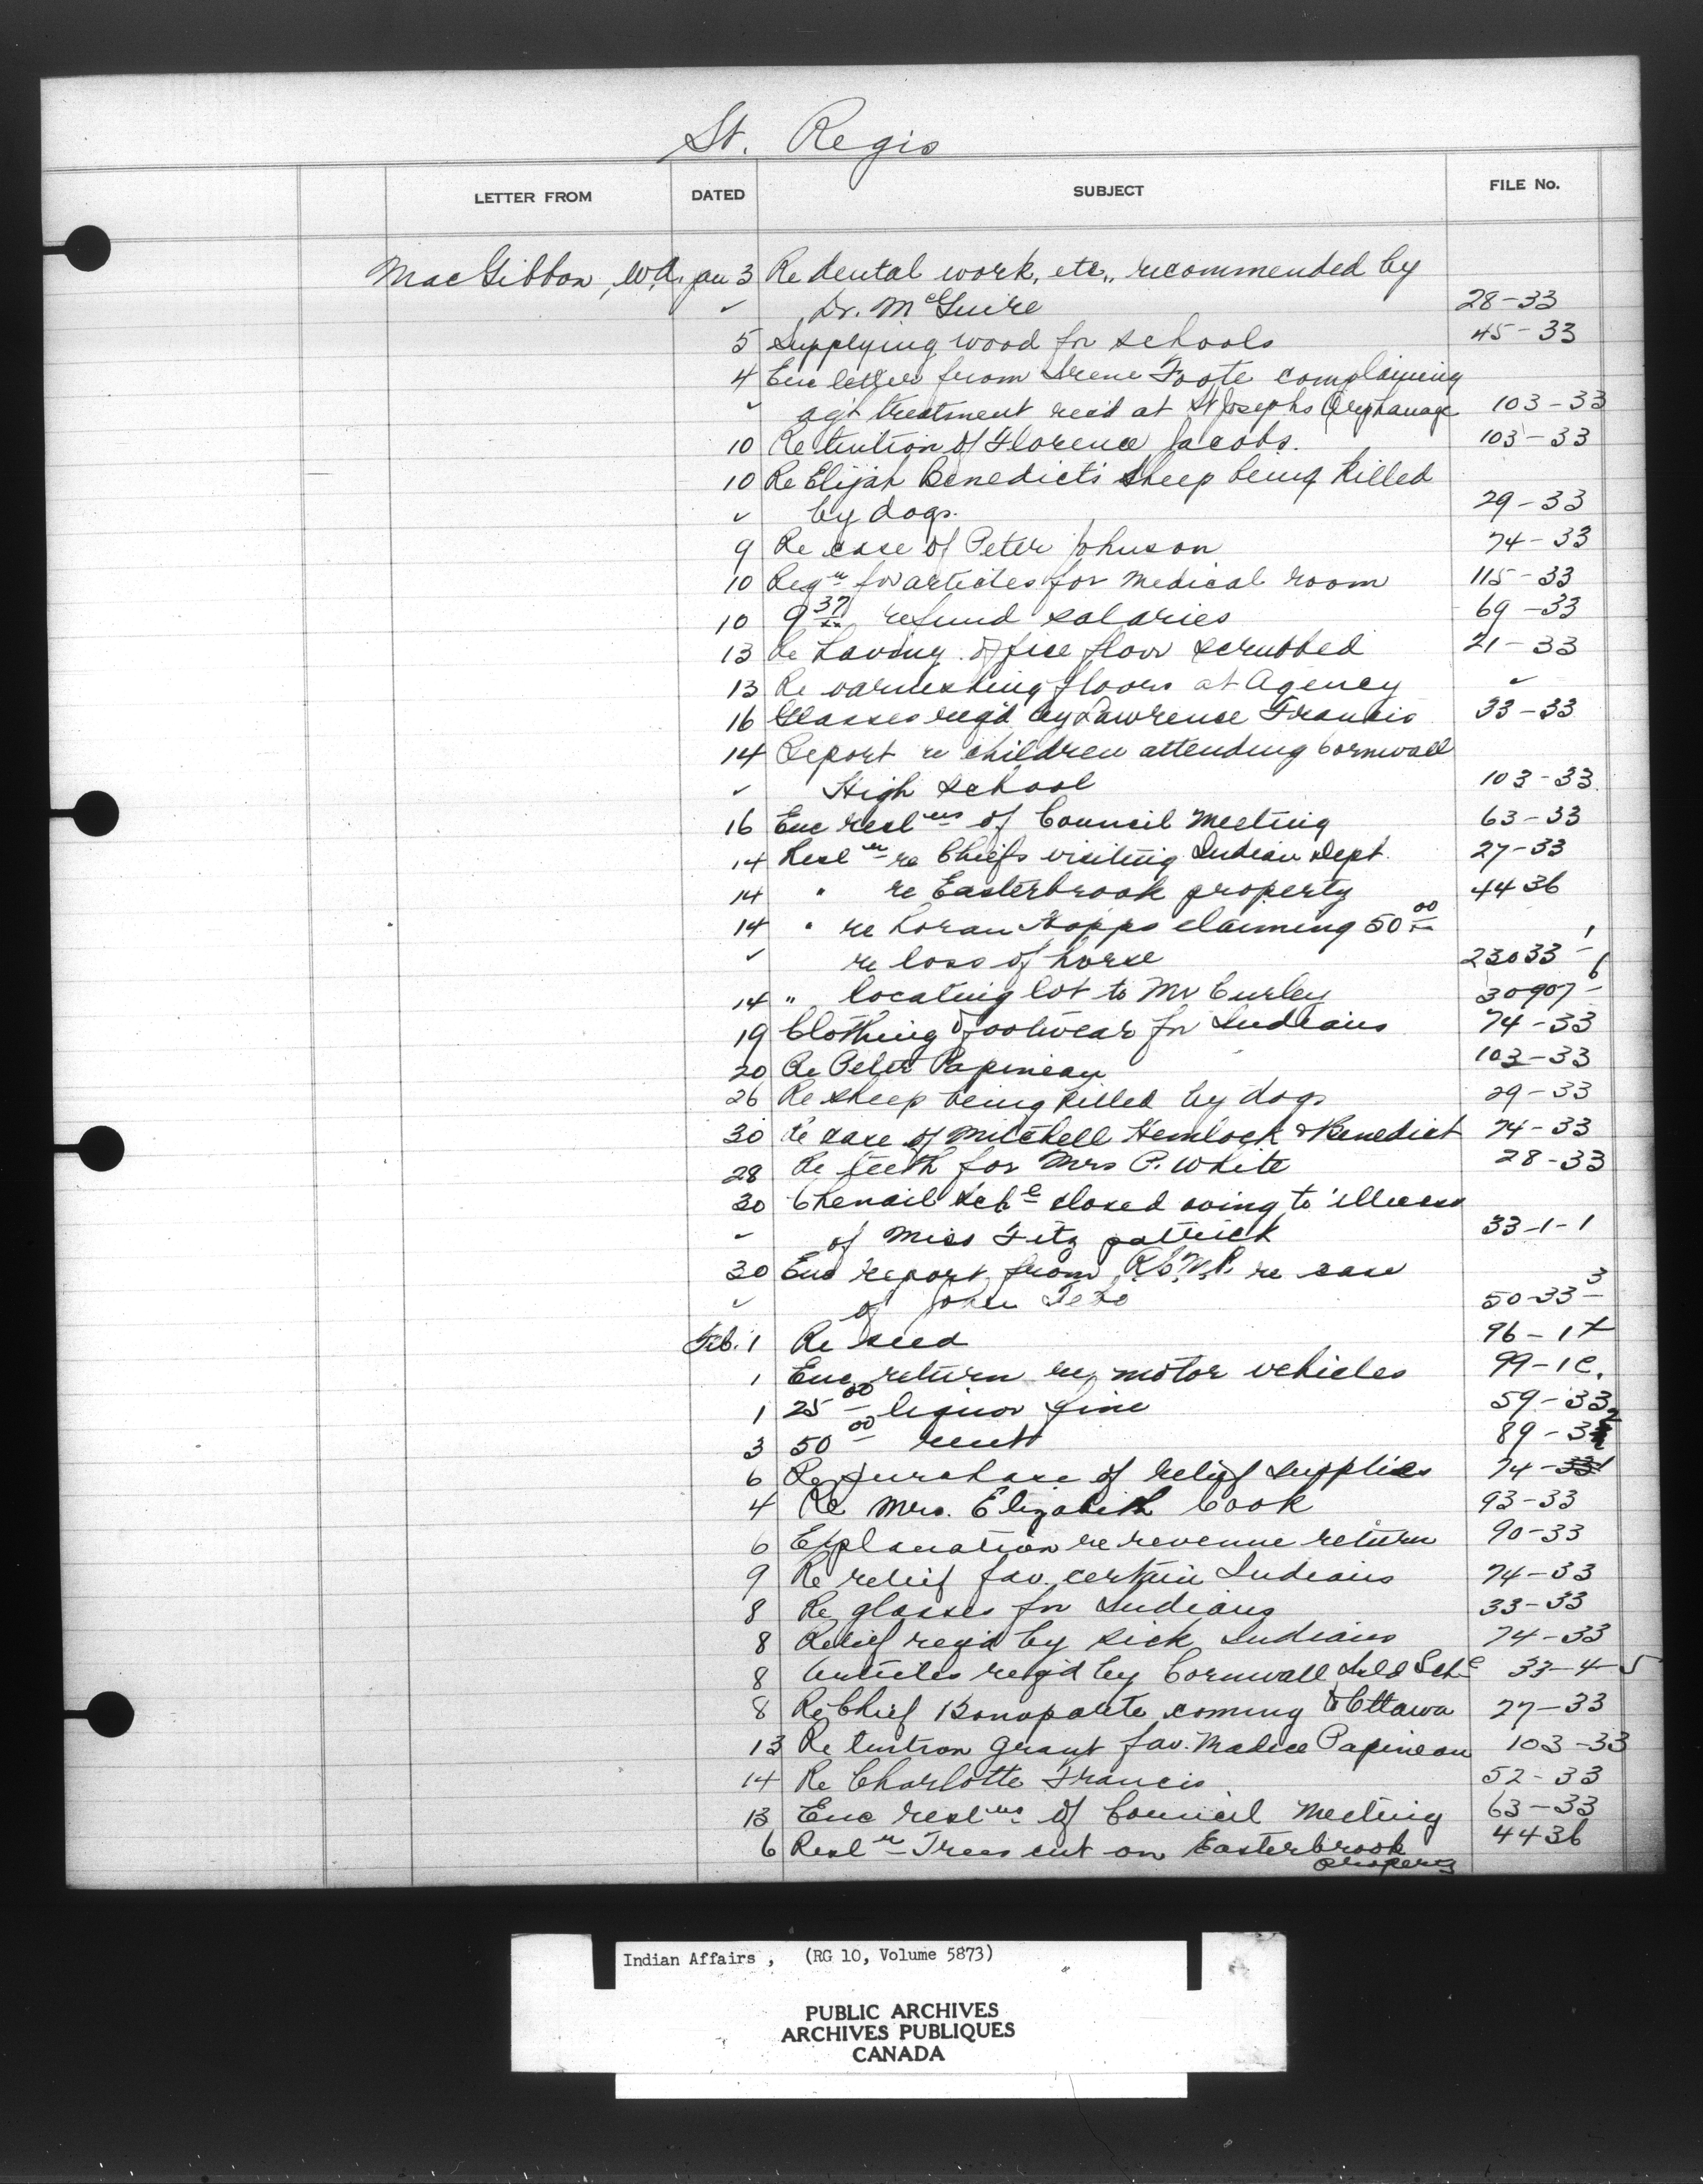 St. Regis
LETTER FROM DATED SUBJECT FILE No.
MacGibbon, W.A. Jan 3 Re dental work, etc., recommended by
✓ Dr. McGuire 28-33
5 Supplying wood for schools 45-33
4 Enc letter from Irene Foote complaining
✓ ag't treatment rec'd at St Josephs Orphanage 103-33
10 Re tuition of Florence Jacobs. 103-33
10 Re Elijah Benedict's sheep being killed
✓ by dogs. 29-33
9 Re case of Peter Johnson 74-33
10 Reqn for articles for medical room 115-33
10 9 37/xx refund salaries 69-33
13 Re having office floor scrubbed 21-33
13 Re varnishing floors at Agency ✓
16 Glasses req'd by Lawrence Francis 33-33
14 Report re children attending Cornwall
✓ High School 103-33.
16 Enc reslns of Council Meeting 63-33
14 Resln re Chiefs visiting Indian Dept. 27-33
14 " re Easterbrook property 4436
14 " re Loran Hopps claiming 50 00/xx
✓ re loss of horse 23033-1
14 " locating lot to Mr Curley 30907-6
19 Clothing & footwear for Indians 74-33
20 Re Peter Papineau 103-33
26 Re sheep being killed by dogs 29-33
30 Re case of Mitchell Hemlock & Benedict 74-33
28 Re teeth for Mrs P. White 28-33
30 Chenail Schl closed owing to illness
✓ of Miss Fitzpatrick 33-1-1
30 Enc report from R.C.M.P. re case
✓ of John 50-33-3
Feb. 1 Re seed 96-1
1 Enc return re motor vehicles 99-1C.
1 25 00 liquor fine 59-33
3 50 00 rent 89-3
6 Re purchase of relief supplies 74-33
4 Re Mrs. Elizabeth Cook 93-33
6 Explanation re revenue return 90-33
9 Re relief fav. certain Indians 74-33
8 Re glasses for Indians 33-33
8 Relief req'd by sick Indians 74-33
8 Articles req'd by Cornwall Isld Schl 33-4-5
8 Re Chief Bonaparte coming to Ottawa 27-33
13 Re tuition grant fav. Papineau 103-33
14 Re Charlotte Francis 52-33
13 Enc reslns of Council Meeting 63-33
6 Resln Trees cut on Easterbrook 4436
property
Indian Affairs , (RG 10, Volume 5873)
PUBLIC ARCHIVES
ARCHIVES PUBLIQUES
CANADA